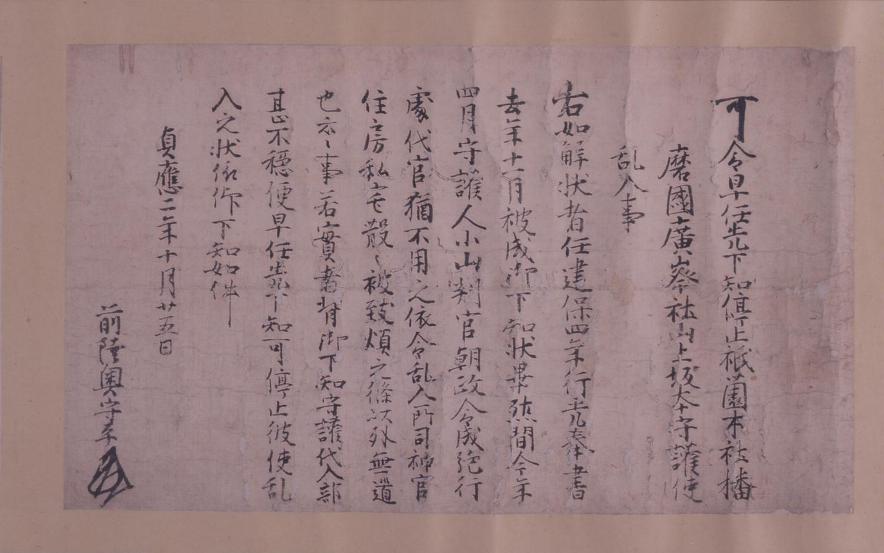 可令早任先下知停止祇薗本社播
磨國廣峯社山上坂本守護使
乱入事
右如解状者任建保四年行光奉書
去年十一月被成御下知状畢然間今年
四月守護人小山判官朝政令成施行
處代官猶不用之依令乱入所司神官
住房私宅散〻被致煩之條以外無道
也云〻事若實者背御下知守護代入部
甚不穏便早任先下知可停止彼使乱
入之状依御下知如件
貞應二年十月廿五日
前陸奥守平